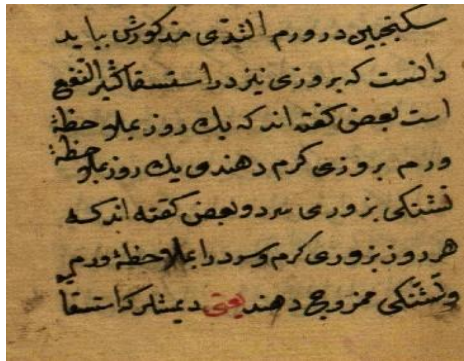 سکنجبین در ورم الثدی مذکورش بباید
دانست که بزوری نیز در استسقا کثیر النفع
است بعضی کفته اند که یك روز بملاحظۀ
ورم بزوری کرم دهند و یك روز بملاحظۀ
تشنکی بزوری سرد و بعض کفته اند که
هر روز بزوری کرم و سرد را بملاحظۀ ورم
و تشنکی ممزوج دهند یعنی در استسقا